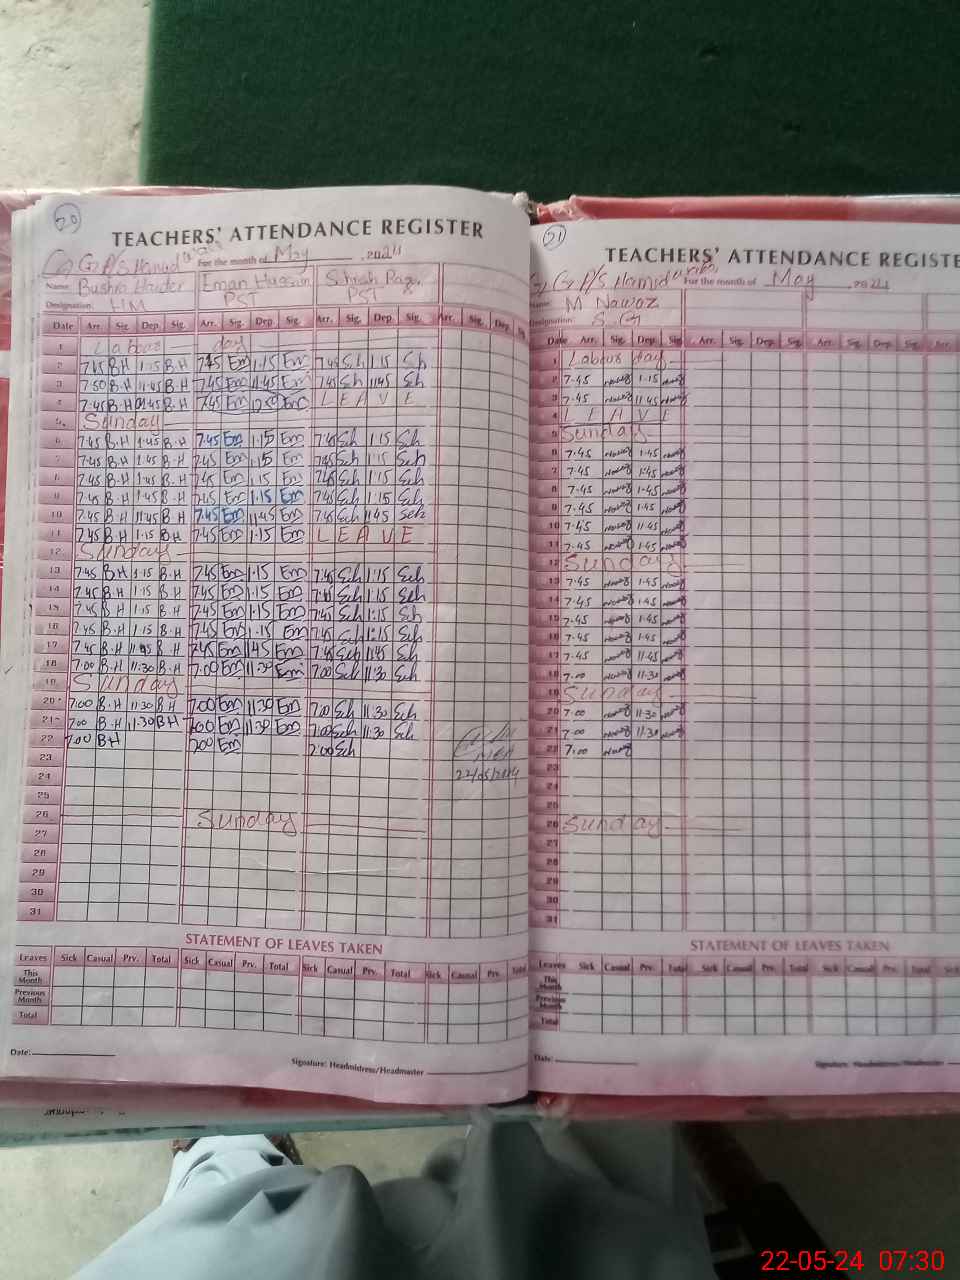 50
TEACHERS' ATTENDANCE REGISTER
For the month of May, 2024
Name: Bushra Haider Eman Hussain
Designation: HM PST PST
Date Arr. Sig. Dep. Sig. Arr. Sig. Dep. Sig. Arr. Sig. Dep. Sig. Arr. Sig. Dep. Sig.
1 Labour day
2 7.45 B.H 1.15 B.H 7.45 Em 1.15 Em 7.45 Sch 1.15 Sch
3 7.50 B.H 11.45 B.H 7.45 Em 11.45 Em 7.45 Sch 11.45 Sch
4 7.45 B.H B.H 7.45 Em Em LEAVE
5 Sunday
6 7.45 B.H 1.45 B.H 7.45 Em 1.15 Em 7.45 Sch 1.15 Sch
7 7.45 B.H 1.45 B.H 7.45 Em 1.15 Em 7.45 Sch 1.15 Sch
8 7.45 B.H 1.45 B.H 7.45 Em 1.15 Em 7.45 Sch 1.15 Sch
9 7.45 B.H 1.45 B.H 7.45 Em 1.15 Em 7.45 Sch 1.15 Sch
10 7.45 B.H 11.45 B.H 7.45 Em 11.45 Em 7.45 Sch 11.45 Sch
11 7.45 B.H 1.15 B.H 7.45 Em 1.15 Em LEAVE
12 Sunday
13 7.45 B.H 1.15 B.H 7.45 Em 1.15 Em 7.45 Sch 1.15 Sch
14 7.45 B.H 1.15 B.H 7.45 Em 1.15 Em 7.45 Sch 1.15 Sch
15 7.45 B.H 1.15 B.H 7.45 Em 1.15 Em 7.45 Sch 1.15 Sch
16 7.45 B.H 1.15 B.H 7.45 Em 1.15 Em 7.45 Sch 1.15 Sch
17 7.45 B.H 11.45 B.H 7.45 Em 11.45 Em 7.45 Sch 11.45 Sch
18 7.00 B.H 11.30 B.H 7.00 Em 11.30 Em 7.00 Sch 11.30 Sch
19 Sunday
20 7.00 B.H 11.30 B.H 7.00 Em 11.30 Em 7.00 Sch 11.30 Sch
21 7.00 B.H 11.30 B.H 7.00 Em 11.30 Em 7.00 Sch 11.30 Sch
22 7.00 B.H 7.00 Em 7.00 Sch
23
24 22/05/2024
25
26 Sunday
27
28
29
30
31
STATEMENT OF LEAVES TAKEN
Leaves Sick Casual Prv. Total Sick Casual Prv. Total Sick Casual Prv. Total Sick Casual Prv. Total
This Month
Previous Month
Total
Date:
Signature: Headmistress/Headmaster
51
TEACHERS' ATTENDANCE REGISTE
For the month of May, 2024
Name: M Nawaz
Designation:
Date Arr. Sig. Dep. Sig. Arr. Sig. Dep. Sig. Arr. Sig. Dep. Sig. Arr.
1 Labour day
2 7.45 Nawaz 1.15 Nawaz
3 7.45 Nawaz 11.45 Nawaz
4 LEAVE
5 Sunday
6 7.45 Nawaz 1.45 Nawaz
7 7.45 Nawaz 1.45 Nawaz
8 7.45 Nawaz 1.45 Nawaz
9 7.45 Nawaz 1.45 Nawaz
10 7.45 Nawaz 11.45 Nawaz
11 7.45 Nawaz 1.45 Nawaz
12 Sunday
13 7.45 Nawaz 1.45 Nawaz
14 7.45 Nawaz 1.45 Nawaz
15 7.45 Nawaz 1.45 Nawaz
16 7.45 Nawaz 1.45 Nawaz
17 7.45 Nawaz 11.45 Nawaz
18 7.00 Nawaz 11.30 Nawaz
19 Sunday
20 7.00 Nawaz 11.30 Nawaz
21 7.00 Nawaz 11.30 Nawaz
22 7.00 Nawaz
23
24
25
26 Sunday
27
28
29
30
31
STATEMENT OF LEAVES TAKEN
Leaves Sick Casual Prv. Total Sick Casual Prv. Total Sick Casual Prv. Total Sick
This Month
Previous Month
Total
Date:
Signature: Headmistress/Headmaster
22-05-24 07:30